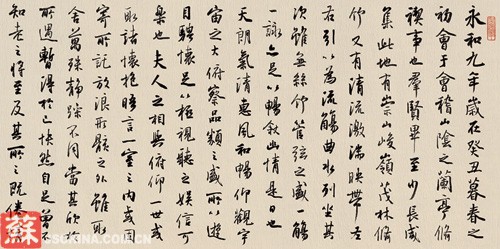 永和九年歲在癸丑暮春之
初會于會稽山陰之蘭亭脩
禊事也羣賢畢至少長咸
集此地有崇山峻嶺茂林脩
竹又有清流激湍映帶左
右引以為流觴曲水列坐其
次雖無絲竹管弦之盛一觴
一詠亦足以暢敘幽情是日也
天朗氣清惠風和暢仰觀宇
宙之大俯察品類之盛所以遊
目騁懷足以極視聽之娛信可
樂也夫人之相與俯仰一世或
取諸懷抱晤言一室之內或因
寄所託放浪形骸之外雖取
舍萬殊靜躁不同當其欣於
所遇暫得於己快然自足曾不
知老之將至及其所之既倦
蘇